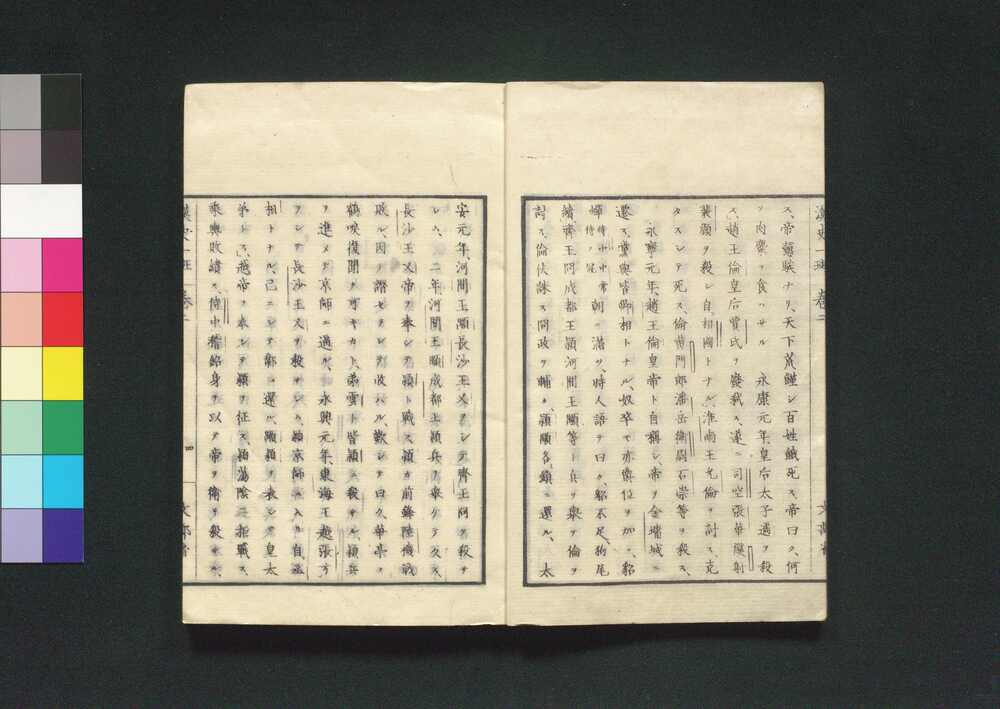 ス、帝戇騃ナリ、天下荒饉シ百姓餓死ス帝曰ク、何
ソ肉糜ヲ食ハサル 永康元年、皇后太子遹ヲ殺
ス、趙王倫皇后賈氏ヲ廢弑ス、遂ニ司空張華僕射
裴頠ヲ殺シ自相國トナル、淮南王允倫ヲ討ス、克
タスシテ死ス、倫黄門郎潘岳衛尉石崇等ヲ殺ス、
永寧元年、趙王倫皇帝ト自稱シ、帝ヲ金墉城ニ
遷ス、黨與皆卿相トナル、奴卒モ亦爵位ヲ加ヘ、貂
蟬侍中中常侍ノ冠朝ニ滿ツ、時人語ヲ曰ク、貂不足、狗尾
續齊王冏成都王穎河間王顒等ト兵ヲ擧ケ倫ヲ
討ス、倫伏誅ス冏政ヲ輔ケ、穎顒各鎮ニ還ル、 太
安元年、河間王顒長沙王乂ヲシテ齊王冏ヲ殺サ
シム、 二年河間王顒成都王穎兵ヲ擧ケテ反ス、
長沙王乂帝ヲ奉シテ穎ト戰ス穎カ前鋒陸機戰
敗ル、因テ譖セラレテ收ハル、歎シテ曰ク、華亭ノ
鶴唳復聞ク可ケンヤト、弟雲ト皆穎ニ殺サル、穎兵
ヲ進メテ京師ニ逼ル、 永興元年、東海王越張方
ヲシテ長沙王乂ヲ殺サシム、穎京師ニ入ル、自丞
相トナル、已ニシテ鄴ニ還ル、顒穎ヲ表シテ皇太
弟トス、越帝ヲ奉シテ穎ヲ征ス、穎蕩陰ニ拒戰ス、
乗輿敗績ス、侍中嵆紹身ヲ以テ帝ヲ衛ヲ殺サル、
漢史一班 卷三
四
文部省